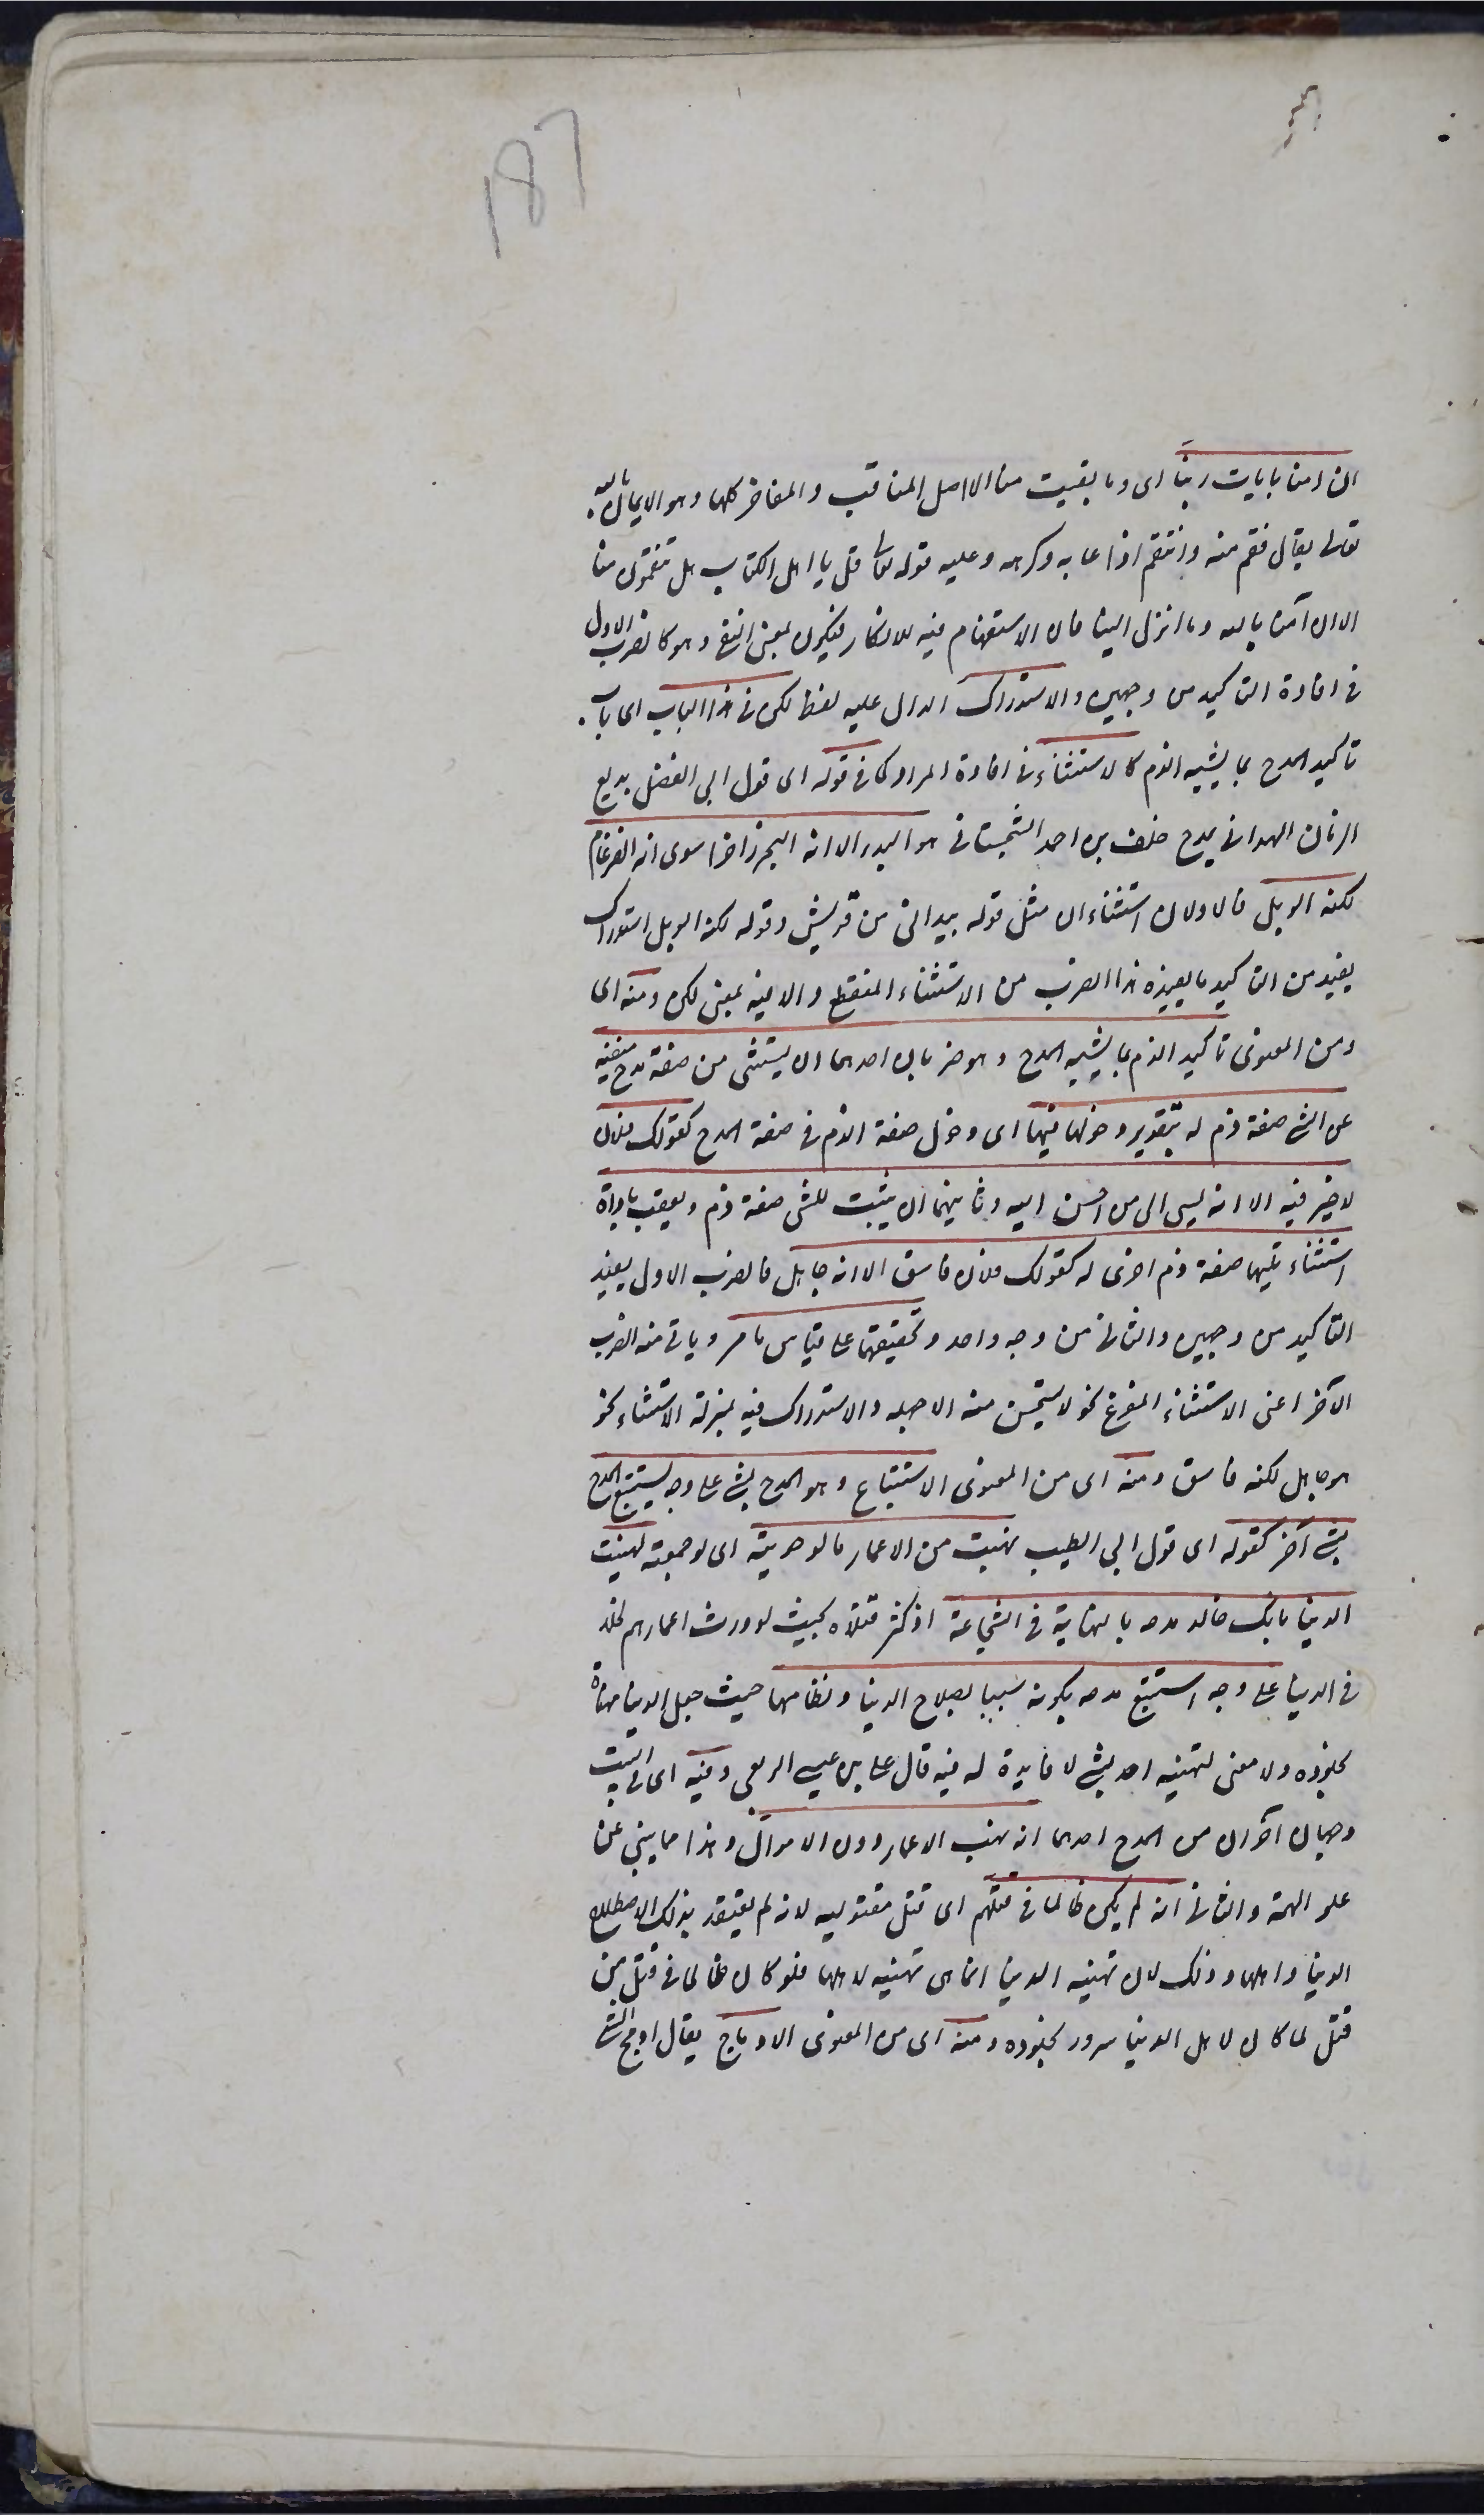 187
ان امنا بايات ربنا اى وما بقيت منا الا اصل المناقب والمفاخر كلها وهو الايمان بالله
تعالى يقال نقم منه وانتقم اذا عابه وكرهه وعليه قوله تعالى قل يا اهل الكتاب هل تنقمون منا
الا ان آمنا بالله وما انزل الينا فان الاستفهام فيه للانكار فيكون بمعنى النفى وهو كالضرب الاول
فى افادة التاكيد من وجهين والاستدراك الدال عليه لفظ لكن فى هذا الباب اى باب
تاكيد المدح بما يشبه الذم كالاستثناء فى افادة المراد كما فى قوله اى قول ابى الفضل بديع
الزمان الهمدانى يمدح خلف بن احمد السجستانى هو البدر الا انه البحر زاخرا سوى انه الضرغام
لكنه الوبل فالاولان استثناءان مثل قوله بيد انى من قريش وقوله لكنه الوبل استدراك
يفيد من التاكيد ما يفيده هذا الضرب من الاستثناء المنقطع والا فيه بمعنى لكن ومنه اى
ومن المعنوى تاكيد الذم بما يشبه المدح وهو ضربان احدهما ان يستثنى من صفة مدح منفية
عن الشئ صفة ذم له بتقدير دخولها فيها اى دخول صفة الذم فى صفة المدح كقولك فلان
لا خير فيه الا انه يسئ الى من احسن اليه وثانيهما ان يثبت للشئ صفة ذم ويعقب باداة
استثناء تليها صفة ذم اخرى له كقولك فلان فاسق الا انه جاهل فالضرب الاول يفيد
التاكيد من وجهين والثانى من وجه واحد وتحقيقهما على قياس ما مر وياتى منه الضرب
الآخر اعنى الاستثناء المفرغ نحو لا يستحسن منه الا جهله والاستدراك فيه بمنزلة الاستثناء نحو
هو جاهل لكنه فاسق ومنه اى من المعنوى الاستتباع وهو المدح بشئ على وجه يستتبع المدح
بشئ آخر كقوله اى قول ابى الطيب نهبت من الاعمار ما لو حويته اى لو جمعته لهنيت
الدنيا بانك خالد مدحه بالنهاية فى الشجاعة اذ كثر قتلاه بحيث لو ورث اعمارهم لخلد
فى الدنيا على وجه استتبع مدحه بكونه سببا لصلاح الدنيا ونظامها حيث جعل الدنيا مهناة
بخلوده ولا معنى لتهنية احد بشئ لا فايدة له فيه قال على بن عيسى الربعى وفيه اى فى البيت
وجهان آخران من المدح احدهما انه نهب الاعمار دون الاموال وهذا مما ينبئ عن
علو الهمة والثانى انه لم يكن ظالما فى قتلهم اى قتل مقتوليه لانه لم يقصد بذلك الا صلاح
الدنيا واهلها وذلك لان تهنية الدنيا انما هى تهنية لاهلها فلو كان ظالما فى قتل من
قتل لما كان لاهل الدنيا سرور بخلوده ومنه اى من المعنوى الادماج يقال ادمج الشئ